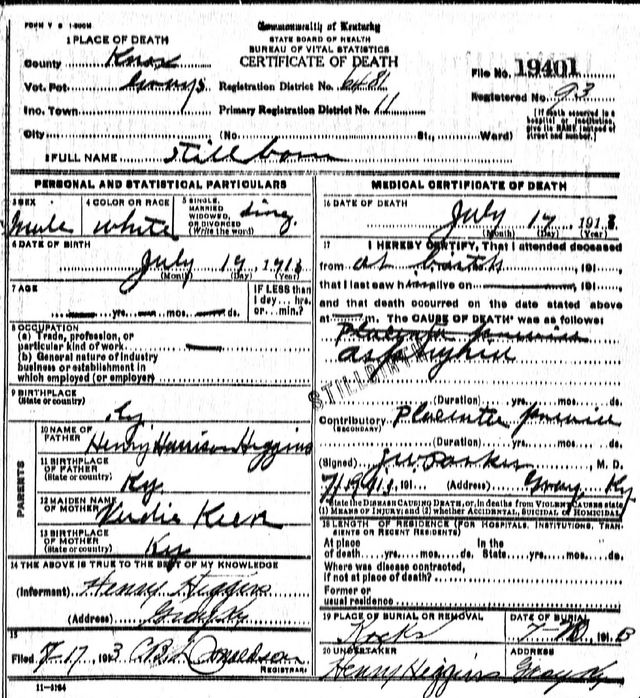 FORM V S 1-500M
Commonwealth of Kentucky
STATE BOARD OF HEALTH
BUREAU OF VITAL STATISTICS
CERTIFICATE OF DEATH
1 PLACE OF DEATH
County Knox
Vot. Pct Grays
Inc. Town
City
Registration District No. 6481
Primary Registration District No. 11
(No St., Ward)
File No. 19401
Registered No. 93
[If death occurred in a hospital or institution, give its NAME instead of street and number.]
2 FULL NAME Stillborn
PERSONAL AND STATISTICAL PARTICULARS
3 SEX Male
4 COLOR OR RACE White
5 SINGLE, MARRIED WIDOWED, OR DIVORCED (Write the word) Sing
6 DATE OF BIRTH
July 19, 1913
(Month) (Day) (Year)
7 AGE
yrs. mos. ds.
IF LESS than 1 day... hrs. or... min.?
8 OCCUPATION
(a) Trade, profession, or particular kind of work
(b) General nature of industry business or establishment in which employed (or employer)
9 BIRTHPLACE
(State or country) Ky
PARENTS
10 NAME OF FATHER Henry Harrison Higgins
11 BIRTHPLACE OF FATHER (State or country) Ky.
12 MAIDEN NAME OF MOTHER Verdie Keen
13 BIRTHPLACE OF MOTHER (State or country) Ky
14 THE ABOVE IS TRUE TO THE BEST OF MY KNOWLEDGE
(Informant) Henry Higgins
(Address) Gray Ky
15
Filed 7-17, 1913 Donaldson
REGISTRAR
11-3184
MEDICAL CERTIFICATE OF DEATH
16 DATE OF DEATH
July 19, 1913
(Month) (Day) (Year)
17 I HEREBY CERTIFY, That I attended deceased
from at birth, 191
that I last saw h alive on, 191
and that death occurred on the date stated above
at m. The CAUSE OF DEATH* was as follows:
Placenta previa
asphyxia
STILLBIRTH
(Duration) yrs. mos. ds.
Contributory Placenta previa
(SECONDARY)
(Duration) yrs. mos. ds.
(Signed) J.W. Parker, M. D.
7/19, 1913, 191 (Address) Gray, Ky
*State the DISEASE CAUSING DEATH, or, in deaths from VIOLENT CAUSES state (1) MEANS OF INJURY; and (2) whether ACCIDENTAL, SUICIDAL OR HOMICIDAL
18 LENGTH OF RESIDENCE (FOR HOSPITALS, INSTITUTIONS, TRANSIENTS OR RECENT RESIDENTS)
At place of death yrs. mos. ds. In the State yrs. mos. ds.
Where was disease contracted, if not at place of death?
Former or usual residence
19 PLACE OF BURIAL OR REMOVAL
DATE OF BURIAL
7-20, 1913
20 UNDERTAKER
Henry Higgins
ADDRESS
Gray Ky